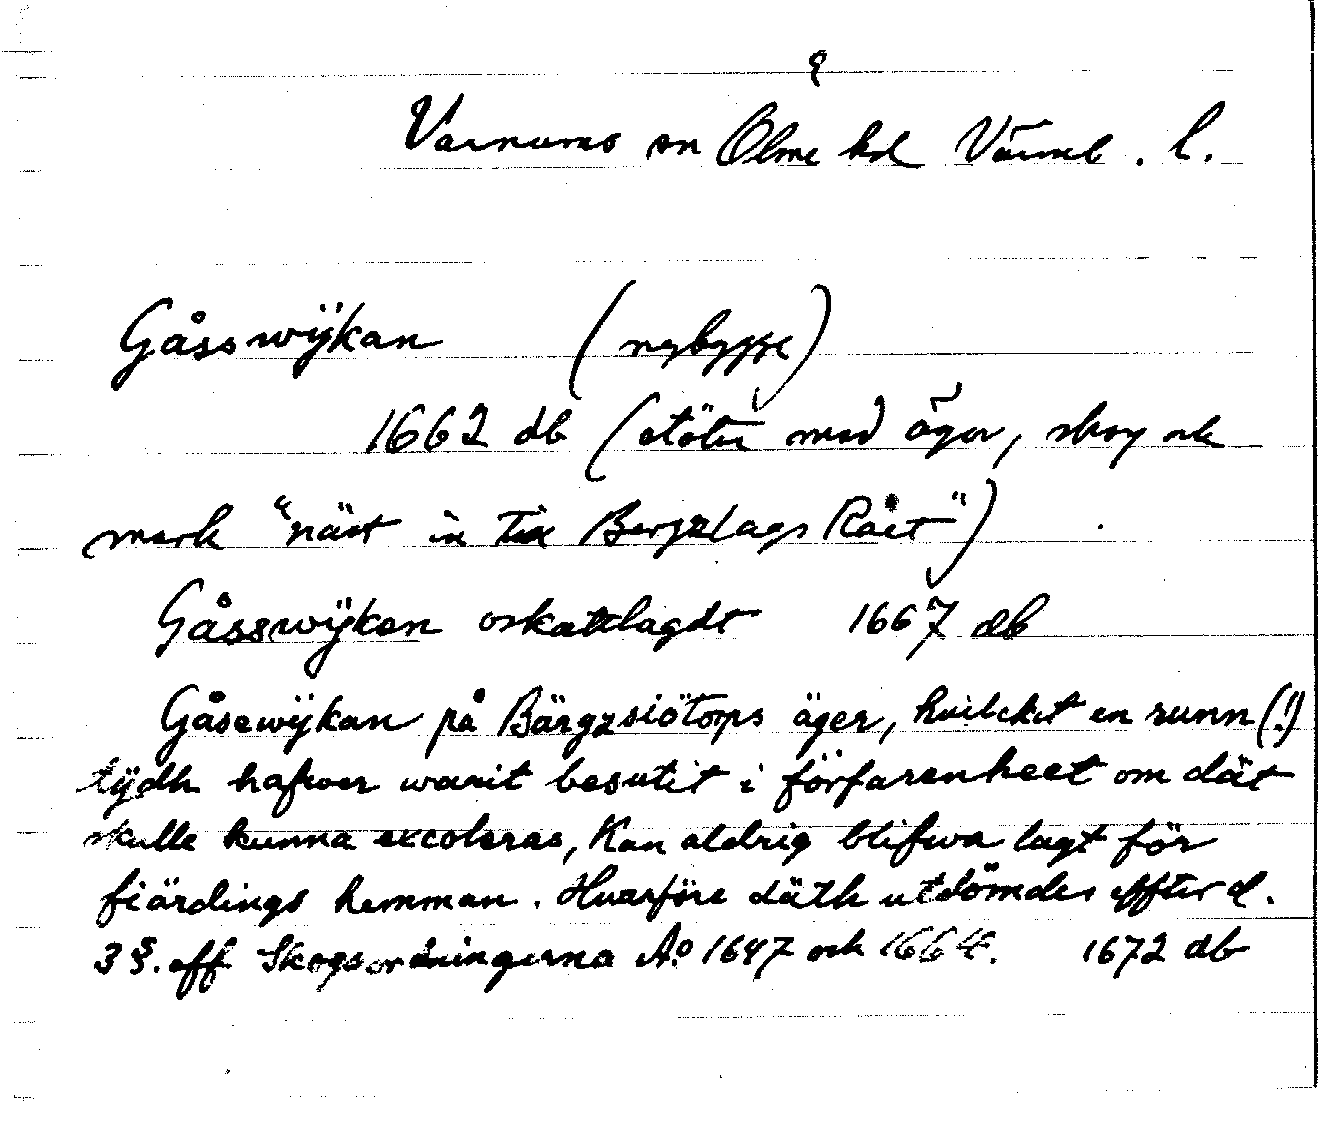 Varnums sn Ölme hd Värml. l.
Gåsswÿkan (nybygge)
1662 db (stöter med äger, skog och
mark "näst in til Bergzlags Rået")
Gåsswÿkan oskattlagdt 1667 db
Gåsewÿkan på Bärgzsiötorps äger, huilcket en runn (!)
tÿdh hafwer warit besutit i förfarenheet om dät
skulle kunna excoleras, Kan aldrig blifwa lagt för
fiärdings hemman. Hvarföre däth utdömdes effter d.
3 §. aff Skogsordningerna Ao 1647 och 1664. 1672 db